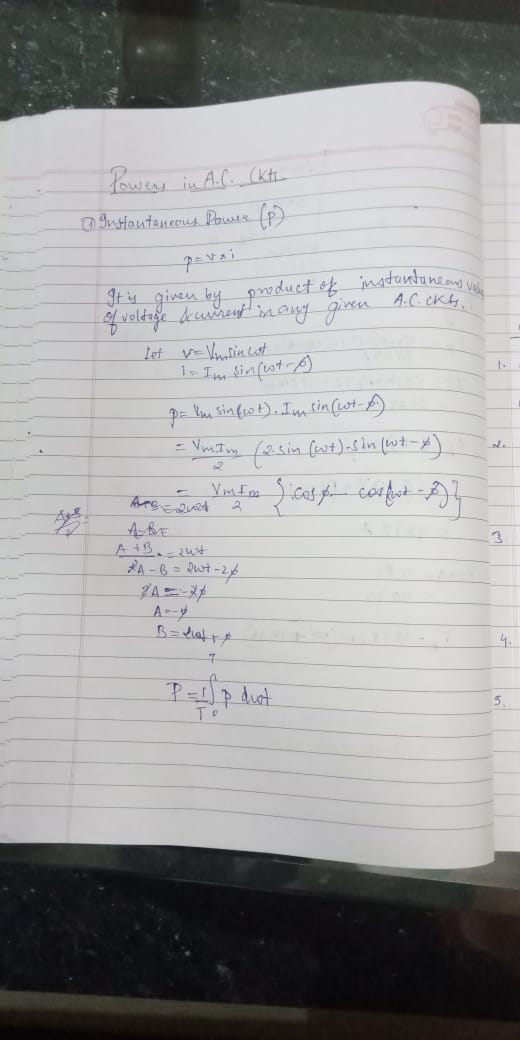 Powers in A.C. Ckts
① Instantaneous Power (p)
p = v × i
It is given by product of instantaneous value
of voltage & current in any given A.C. ckts.
Let v = Vm sin ωt
i = Im sin(ωt - φ)
p = Vm sin(ωt). Im sin(ωt - φ)
= VmIm/2 (2.sin (ωt).sin (ωt - φ)
= VmIm/2 {cos φ - cos(ωt - φ)}
A+B = 2ωt
A-B=
A + B = 2ωt
A - B = 2ωt - 2φ
2A = -2φ
A = -φ
B = 2ωt + φ
P = 1/T ∫₀ᵀ p dωt
1.
2.
3.
4.
5.